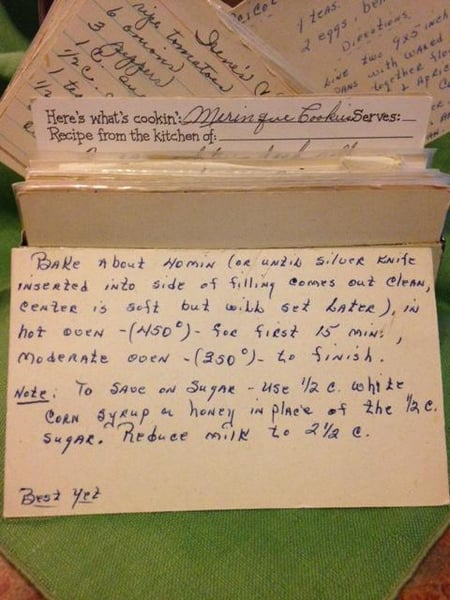 ripe tomatoes
6 onions
3 peppers
1/2 c.
Irene's
1 teas.
2 eggs, be
Directions
Line two 9x5-inch
pans with waxed
together
Apric
Here's what's cookin': Meringue Cookies Serves:
Recipe from the kitchen of:
Bake about 40 min (or until silver knife
inserted into side of filling comes out clean,
center is soft but will set later), in
hot oven -(450°)- for first 15 min;,
moderate oven -(350°)- to finish.
Note: To save on sugar - use 1/2 c. white
corn syrup or honey in place of the 1/2 c.
sugar. Reduce milk to 2 1/2 c.
Best Yet